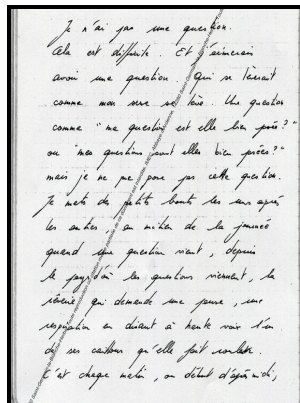 Je n'ai pas une question.
Cela est difficile. Et j'aimerais
avoir une question. Qui se tiendrait
comme mon verre se lève. Une question
comme "ma question est elle bien posée ?"
ou "mes questions sont elles bien posées ?"
mais je ne me pose pas cette question.
Je mets de petits bouts les uns après
les autres, au milieu de la journée
quand une question vient, depuis
le pays d'où les questions viennent, la
rêverie qui demande une pause, une
respiration en disant à haute voix l'un
de ses cailloux qu'elle fait rouler.
C'est chaque matin, en début d'après midi,